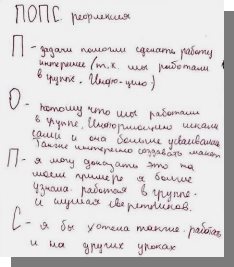 ПОПС рефлексия
П - задачи помогли сделать работу
интереснее (т.к. мы работали
в группе.
О - потому что мы работали
в группе. Информацию искали
сами и она больше усваивалась
Также интересно создавать макет
П - я могу доказать это на
моём примере я больше
узнала работая в группе.
и слушая сверстников.
С - я бы хотела также работать
и на других уроках